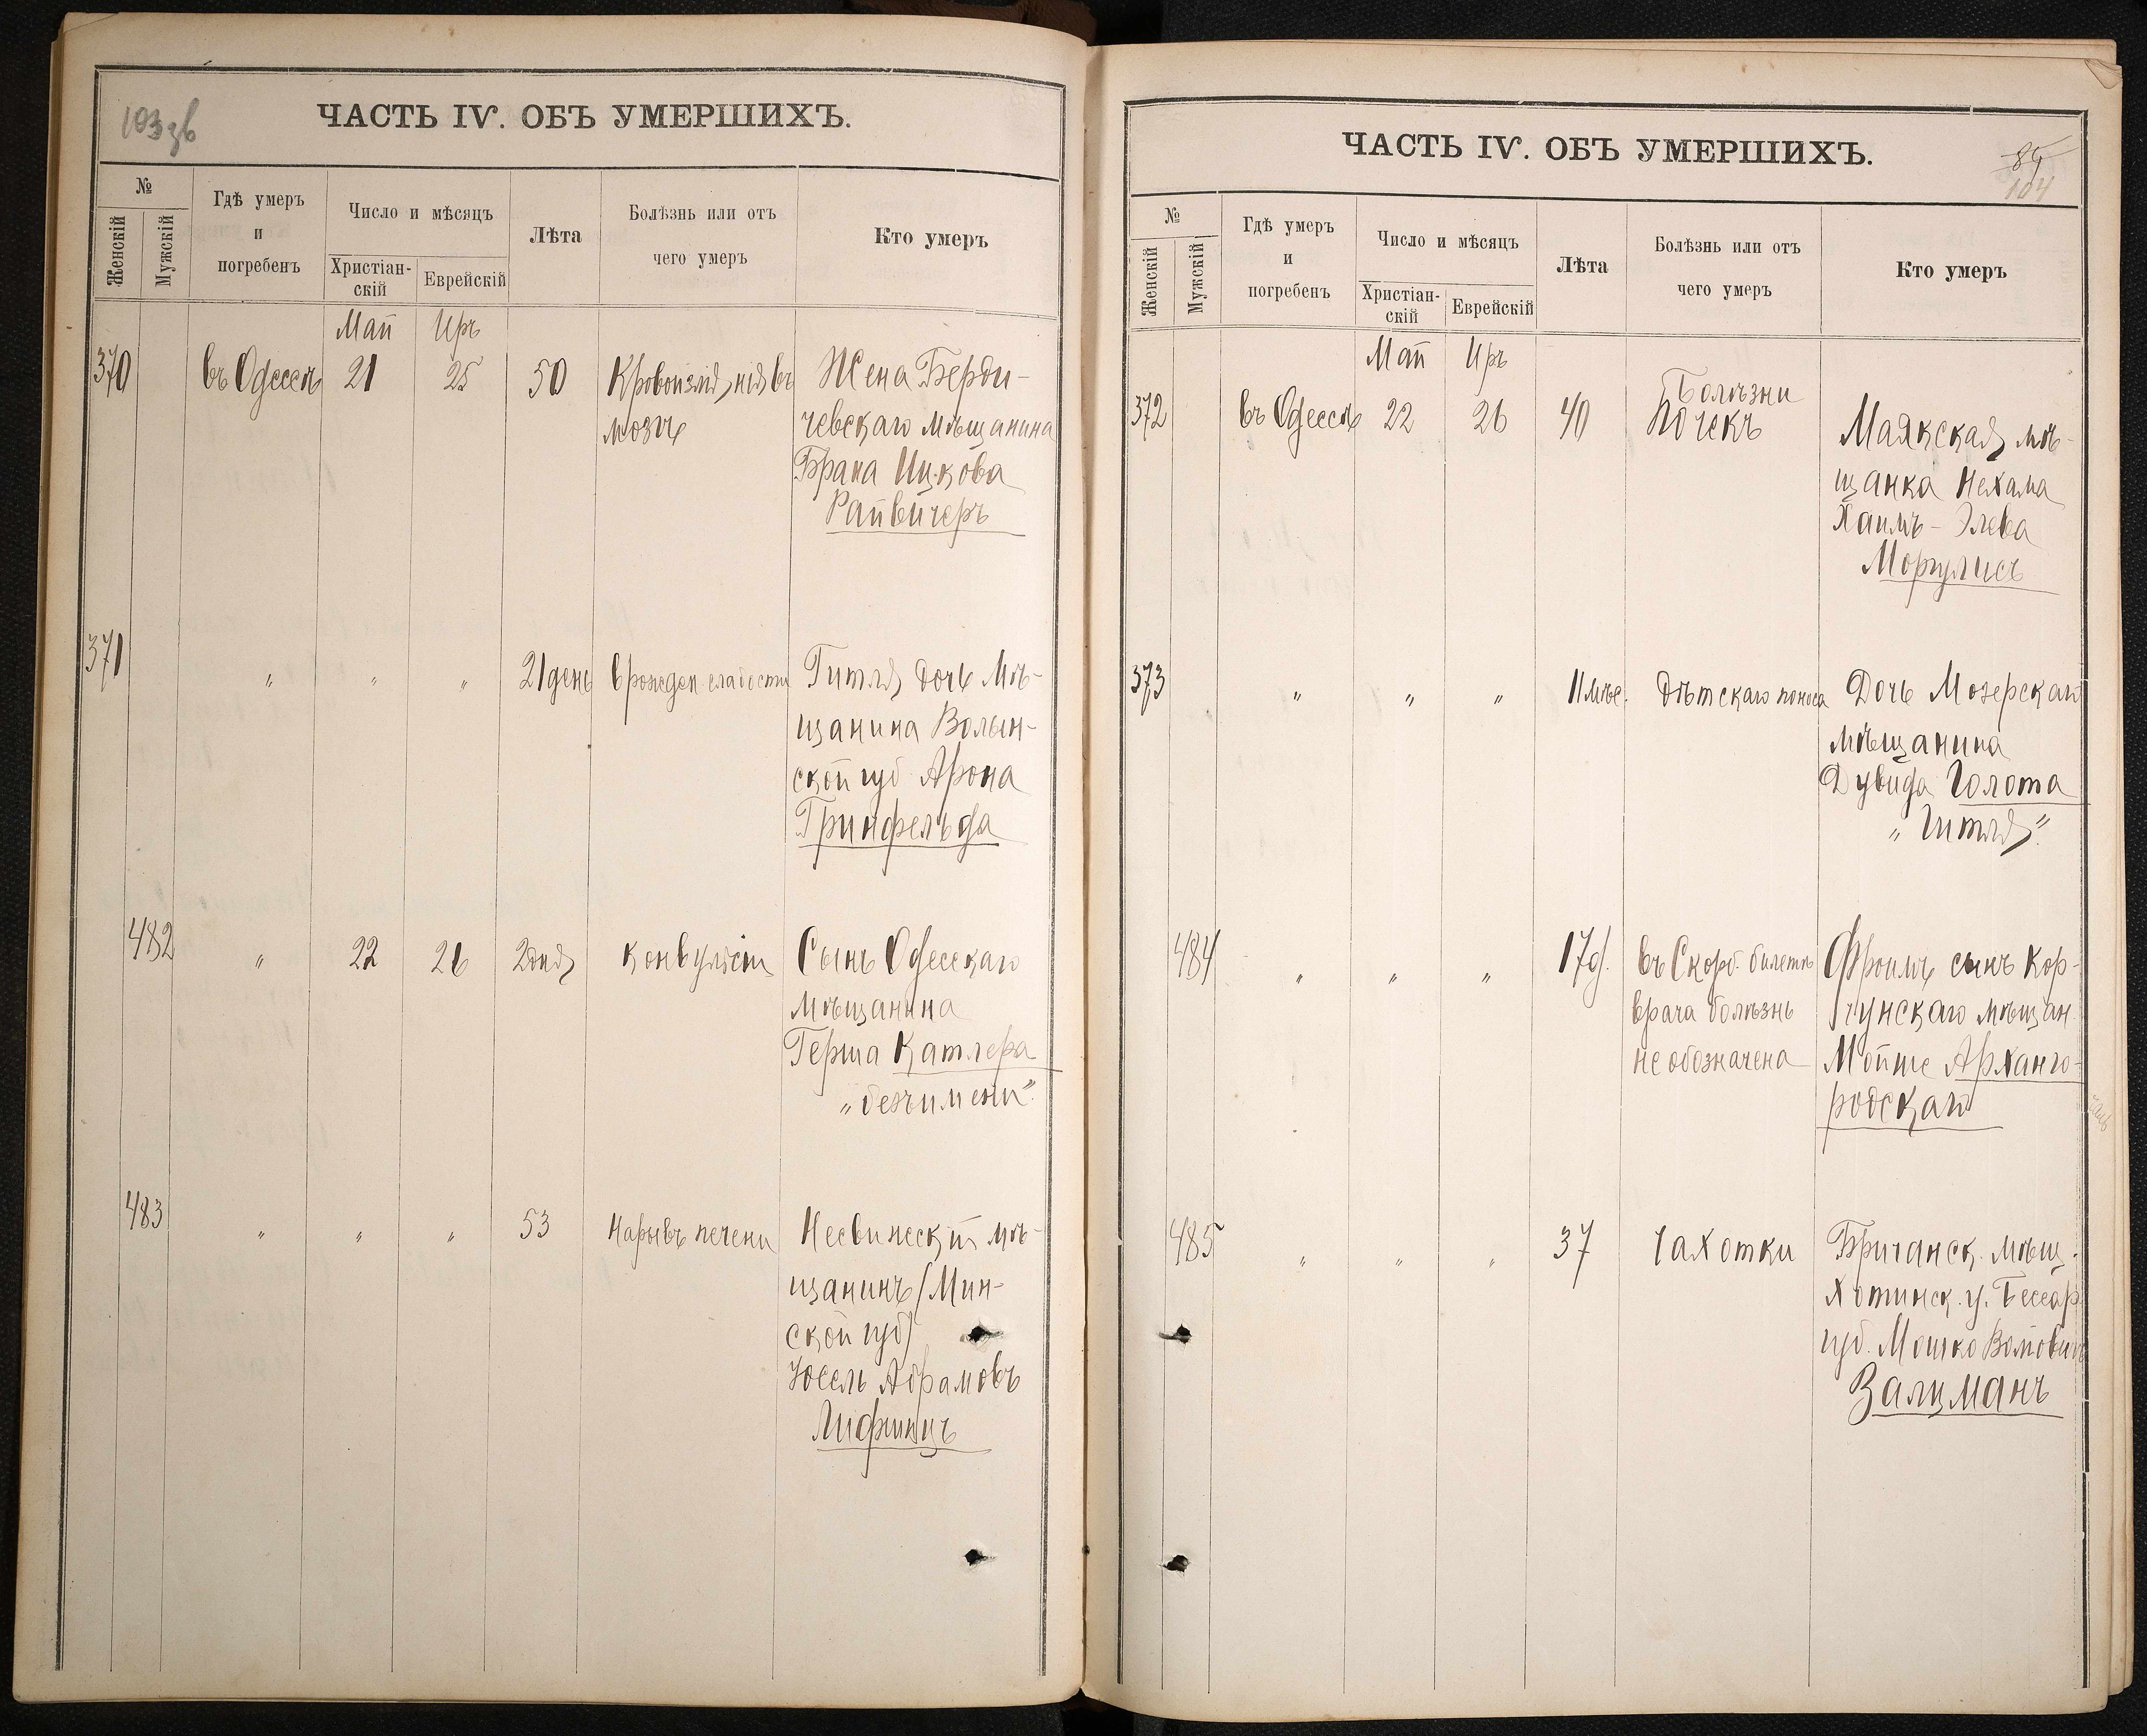 103 зв
ЧАСТЬ IV. ОБЪ УМЕРШИХЪ.
№
Женскій
Мужскій
Гдѣ умеръ
и
погребенъ
Число и мѣсяцъ
Христіан-
скій
Еврейскій
Лѣта
Болѣзнь или отъ
чего умеръ
Кто умеръ
Май Иръ
370 въ Одессѣ 21 25 50 Кровоизліянія въ Жена Берди-
мозгъ чевскаго мѣщанина
Брана Ицкова
Райвичеръ
371 " " " 21 день врожден. слабости Гитля дочь Мѣ-
щанина Волын-
ской губ Арона
Гринфельда
482 " 22 26 2 дня Конвульсіи Сынъ Одесскаго
Мѣщанина
Герша Катлера
"безъимени"
483 " " " 53 Нарывъ печени Несвижескій мѣ-
щанинъ (Мин-
ской губ)
Іосель Абрамовъ
Лифшицъ
ЧАСТЬ IV. ОБЪ УМЕРШИХЪ.
104
№
Женскій
Мужскій
Гдѣ умеръ
и
погребенъ
Число и мѣсяцъ
Христіан-
скій
Еврейскій
Лѣта
Болѣзнь или отъ
чего умеръ
Кто умеръ
Май Иръ
Болѣзни
372 въ Одессѣ 22 26 40 Почекъ Маякская мѣ-
щанка Нехама
Хаимъ-Элева
Моргулисъ
373 " " " 11 мѣс. Дѣтскаго поноса Дочь Мозерскаго
мѣщанина
Дувида Голота
"Гитля"
484 " " " 17 д. въ Скорб. билетѣ Фроимъ сынъ Кор-
врача болѣзнь чунскаго мѣщан.
не обозначена Мойше Арханго-
родскаго
485 " " " 37 Чахотки Бричанск. мѣщ.
Хотинск. у. Бессар.
губ. Мошко
Залцманъ